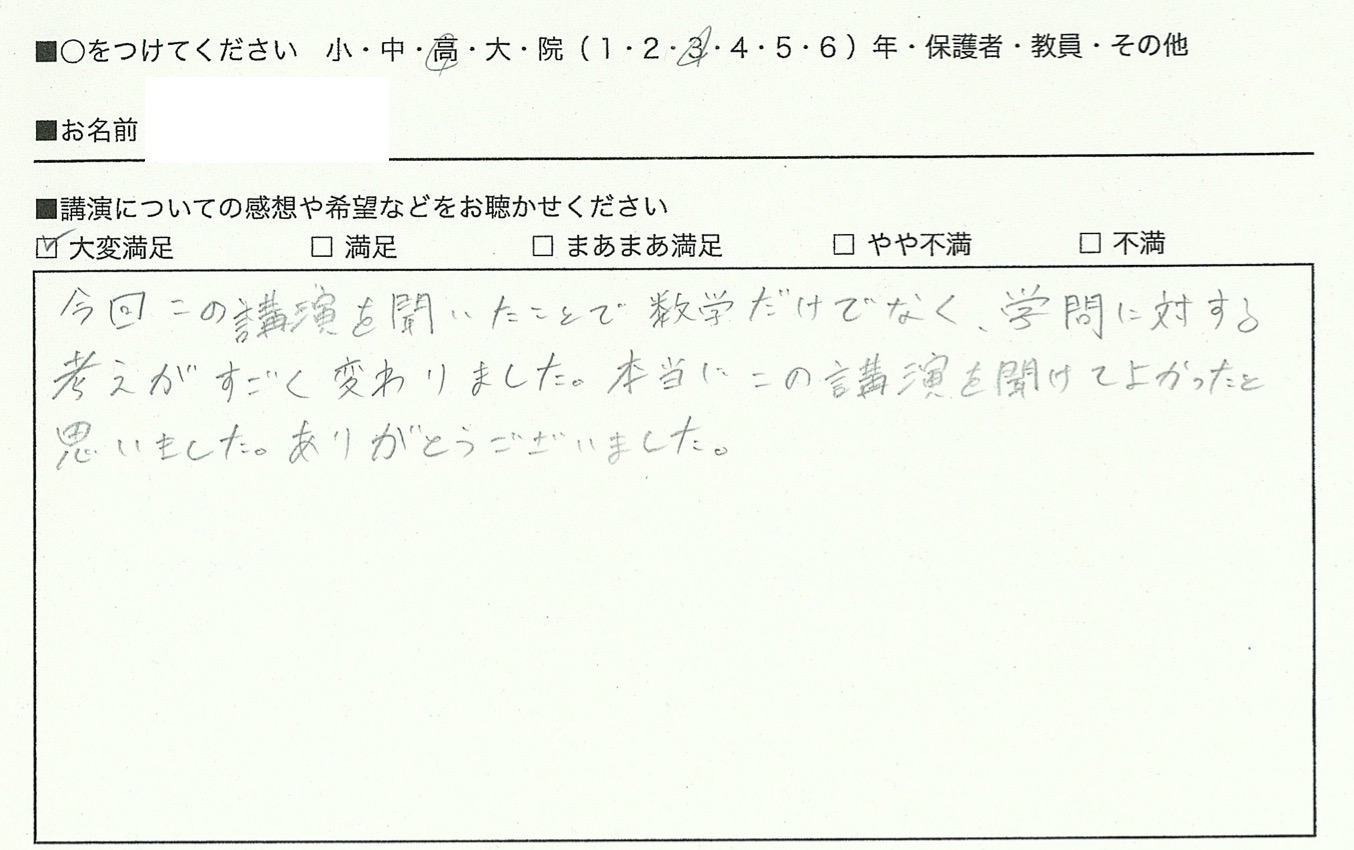 ■○をつけてください 小・中・高・大・院（1・2・3・4・5・6）年・保護者・教員・その他
■お名前
■講演についての感想や希望などをお聴かせください
☑ 大変満足 □ 満足 □ まあまあ満足 □ やや不満 □ 不満
今回この講演を聞いたことで数学だけでなく、学問に対する
考えがすごく変わりました。本当にこの講演を聞けてよかったと
思いました。ありがとうございました。